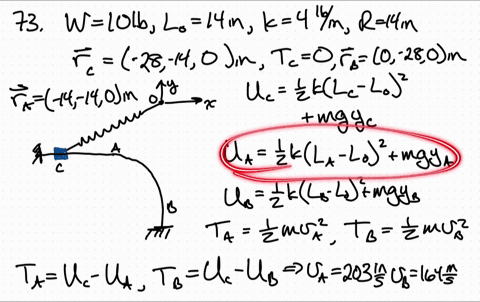 73. W=10lb, L₀=14in, k=4 lb/in, R=14in
r⃗_C=(-28,-14,0)in, T_C=0, r⃗_B=(0,-28,0)in
r⃗_A=(-14,-14,0)in
O
y
x
U_C=½k(L_C-L₀)²
+mgy_C
C
A
B
U_A=½k(L_A-L₀)²+mgy_A
U_B=½k(L_B-L₀)²+mgy_B
T_A=½mv_A², T_B=½mv_B²
T_A=U_C-U_A, T_B=U_C-U_B ⇒ v_A=203 in/s v_B=164 in/s